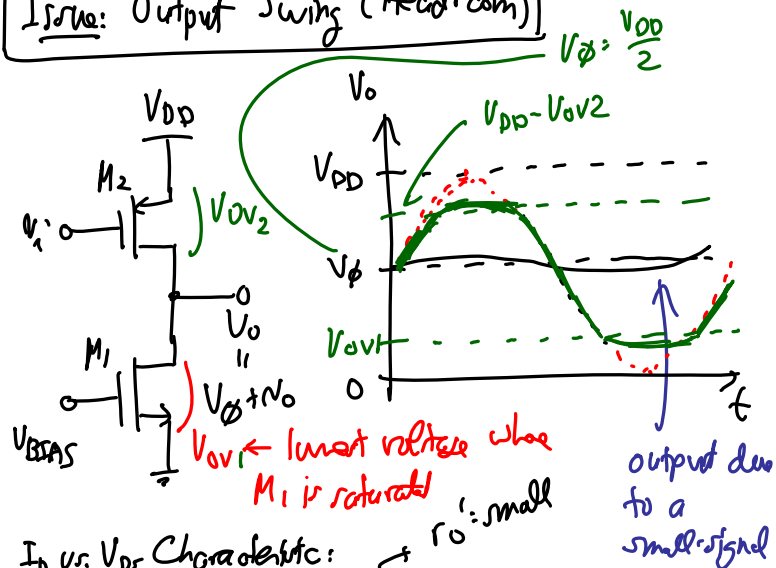 Issue: Output Swing (Headroom)
Vø = VDD/2
VDD
M2
Vi
VOV2
M1
VBIAS
Vo
=
Vø + vo
VOV1 ← lowest voltage where
M1 is saturated
Vo
VDD - VOV2
VDD
Vø
VOV1
0
t
output due
to a
small-signal
ro: small
ID vs. VDS Characteristic: